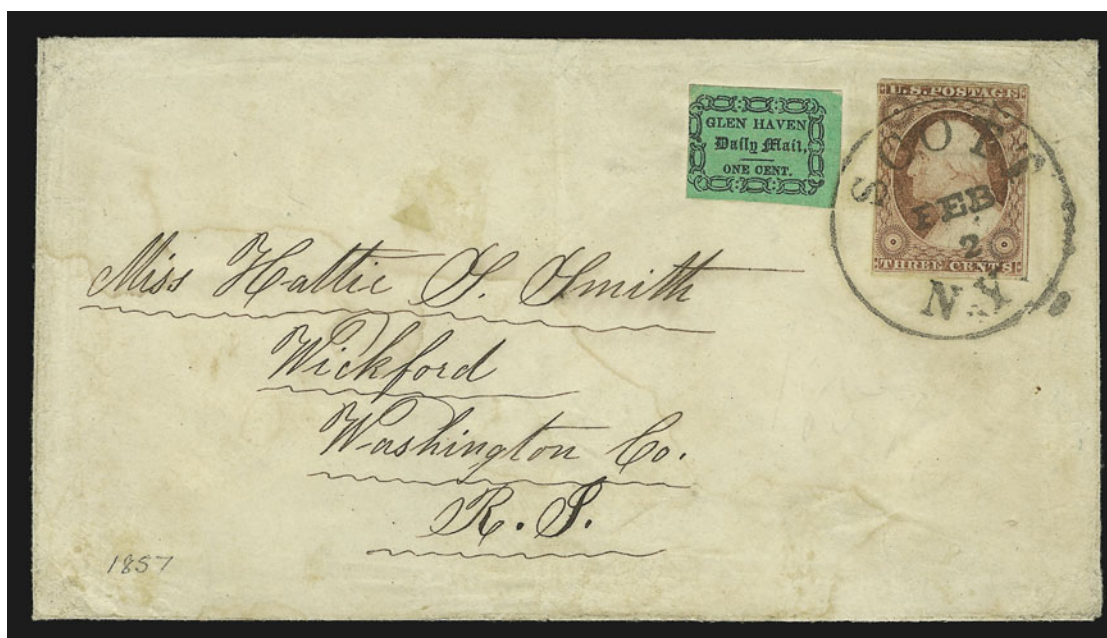 GLEN HAVEN
Daily Mail,
ONE CENT.
U.S. POSTAGE
THREE CENTS
SCOTT
FEB
2
N.Y
Miss Hattie S. Smith
Wickford
Washington Co.
R. I.
1857